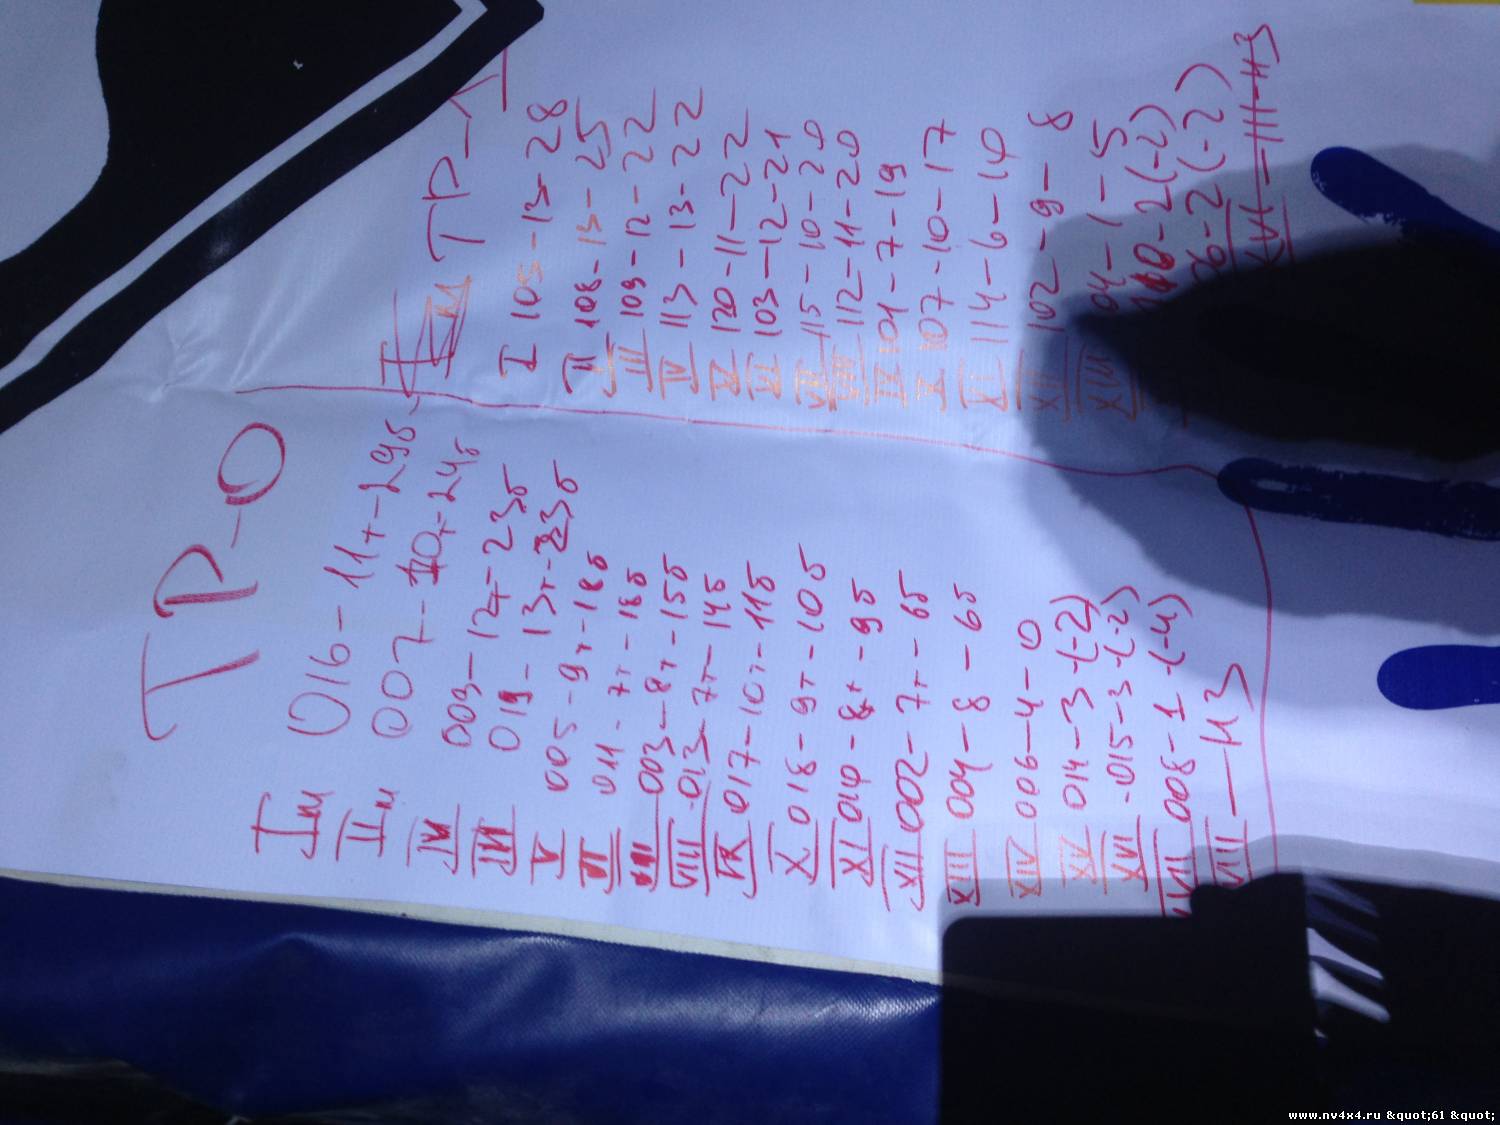 ТР-О
Iм 016 - 11т - 29б
IIм 007 - 10т - 24б
009 - 12т - 23б
019 - 13т - 23б
V 005 - 9т - 18б
VI 011 - 7т - 18б
003 - 8т - 15б
VIII 013 - 7т - 14б
IX 017 - 10т - 11б
X 018 - 9т - 10б
XI 010 - 8т - 9б
XII 002 - 7т - 6б
XIII 004 - 8 - 6б
XIV 006 - 4 - 0
XV 014 - 3 - (-2)
XVI 015 - 3 - (-2)
XVII 008 - 1 - (-4)
VIII — НЗ
ТР-1
I 105 - 13 - 28
II 108 - 13 - 25
III 109 - 12 - 22
IV 113 - 13 - 22
V 120 - 11 - 22
VI 103 - 12 - 21
VII 115 - 10 - 20
VIII 112 - 11 - 20
IX 101 - 7 - 19
X 107 - 10 - 17
XI 114 - 6 - 10
XII 102 - 9 - 8
XIII 104 - 1 - 5
- 2 (-2)
06 - 2 (-2)
XVI - 111 - НЗ
www.nv4x4.ru &quot;61 &quot;